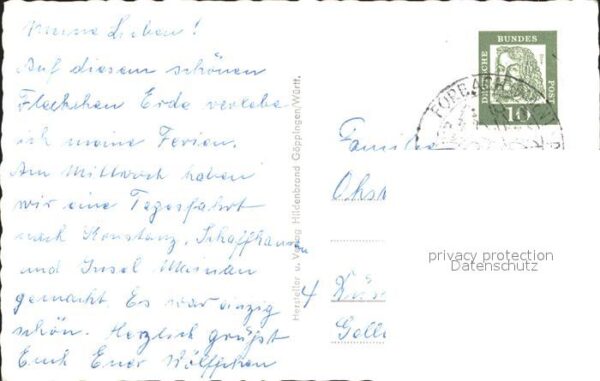 Meine Lieben!
Auf diesem schönen
Fleckchen Erde verlebe
ich meine Ferien.
Am Mittwoch haben
wir eine Tagesfahrt
nach Konstanz, Schaffhausen
und Insel Mainau
gemacht. Es war einzig
schön. Herzlich grüßt
Euch Euer Wölffchen
Hersteller u. Verlag Hildenbrand Göppingen/Württ.
DEUTSCHE
BUNDES
POST
10
FORBACH
Familie
4
privacy protection
Datenschutz